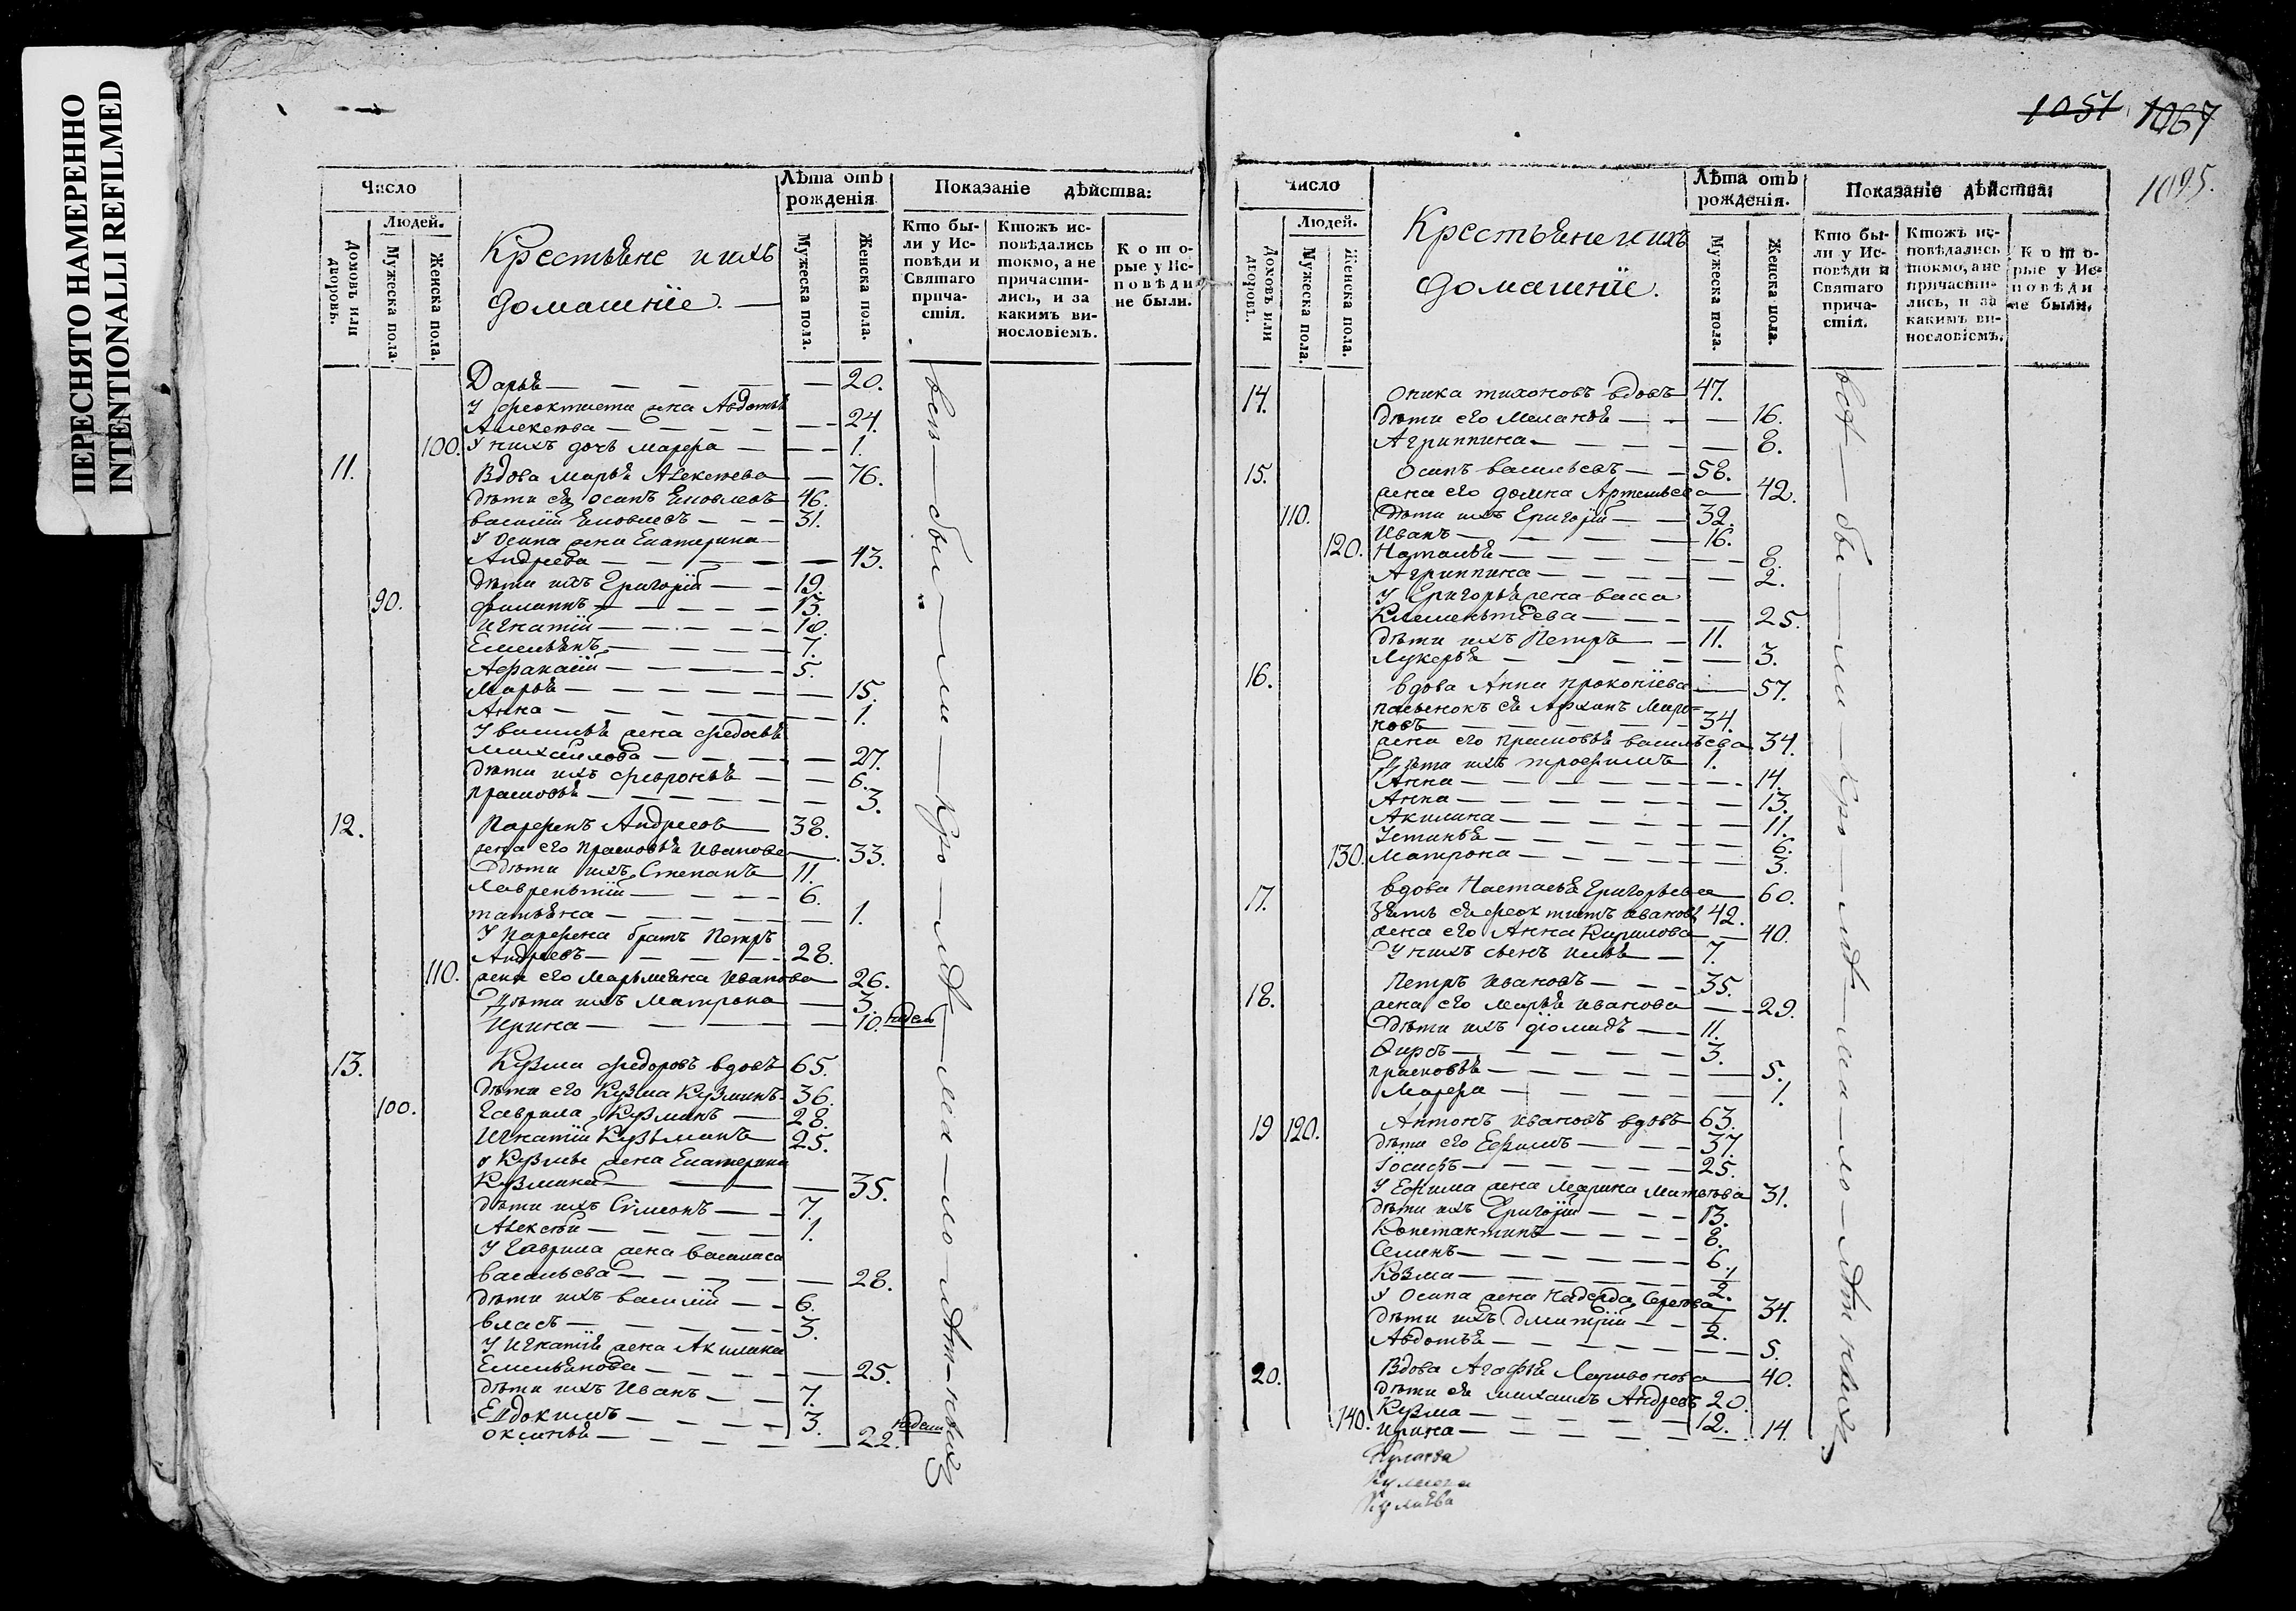 ПЕРЕСНЯТО НАМЕРЕННО
INTENTIONALLI REFILMED
Число
Людей.
Домовъ или дворовъ.
Мужеска пола.
Женска пола.
Крестьяне и ихъ
домашніе.
Лѣта отъ рожденія.
Мужеска пола.
Женска пола.
Показаніе дѣйства:
Кто были у Исповѣди и Святаго причастія.
Ктожъ исповѣдались токмо, а не причастились, и за какимъ винословіемъ.
Которые у Исповѣди не были.
Дарья — 20.
У феоктиста жена Авдотья
Алексѣева — 24.
100. У нихъ дочь марѳа — 1.
11. Вдова марья Алексѣева — 76.
дѣти ея осипъ Яковлевъ 46.
василій Яковлевъ — 31.
У Осипа жена Екатерина
Андреева — 43.
дѣти ихъ Григорій — 19.
90. филиппъ — 13.
Игнатій — 10.
Емельянъ — 7.
Афанасій — 5.
Марья — 15.
Анна — 1.
У василья жена федосья
михайлова — 27.
дѣти ихъ февронья — 6.
прасковья — 3.
12. Парфенъ Андреевъ 38.
жена его прасковья Иванова 33.
дѣти ихъ Степанъ 11.
Лаврентій — 6.
татьяна — 1.
У парфена братъ Петръ
Андреевъ — 28.
110. жена его Марьмяна Иванова 26.
Дѣти ихъ Матрона — 3.
Ирина — 10.
13. Кузма федоровъ вдовъ 65.
дѣти его Кузма Кузминъ 36.
100. Гаврила Кузминъ — 28.
Игнатій Кузьминъ 25.
у Кузмы жена Екатерина
Кузмина — 35.
дѣти ихъ Симеонъ — 7.
Алексѣй — 1.
У Гаврила жена василиса
васильева — 28.
дѣти ихъ василій — 6.
власъ — 3.
У Игнатія жена Акилина
Емельянова — 25.
дѣти ихъ Иванъ — 7.
Евдокимъ — 3.
оксинья — 22.
1051 1067
1095.
Число
Людей.
Домовъ или дворовъ.
Мужеска пола.
Женска пола.
Крестьяне и ихъ
домашніе.
Лѣта отъ рожденія.
Мужеска пола.
Женска пола.
Показаніе дѣйства:
Кто были у Исповѣди и Святаго причастія.
Ктожъ исповѣдались токмо, а не причастились, и за какимъ винословіемъ.
Которые у Исповѣди не были.
14. Оника тихоновъ вдовъ 47.
дѣти его Меланья — 16.
Агриппина — 8.
15. Осипъ васильевъ — 58.
жена его домна Артемьева 42.
110. Дѣти ихъ Григорій — 32.
Иванъ — 16.
120. Наталья — 8.
Агриппина — 2.
У Григорья жена васса
Клементіева — 25.
дѣти ихъ Петръ — 11.
Лукерья — 3.
16. вдова Анна прокопіева 57.
пасынокъ ея
34.
жена его прасковья васильева 34.
Дѣти ихъ трофимъ 1.
Анна — 14.
Анна — 13.
Акилина — 11.
Устинья — 6.
130. Матрона — 3.
17. вдова Настасья Григорьева 60.
Зять ея феоктистъ ивановъ 42.
жена его Анна Кирилова 40.
У нихъ сынъ илья — 7.
18. Петръ ивановъ — 35.
жена его марья иванова — 29.
Дѣти ихъ діомидъ — 11.
Ѳирсъ — 3.
прасковья — 5.
Марѳа — 1.
19 120. Антонъ ивановъ вдовъ 63.
дѣти его Ефимъ — 37.
Іосифъ — 25.
У Ефима жена Марина Матвѣева 31.
дѣти ихъ Григорій — 13.
Константинъ — 8.
Семинъ — 6.
Козма — 1/2.
У Осипа жена надежда Сергѣева 34.
дѣти ихъ дмитрій — 1/2.
Авдотья — 5.
20. Вдова Агафья Ларивонова 40.
дѣти ея михаилъ Андреевъ 20.
Кузма — 12.
140. ирина — 14.